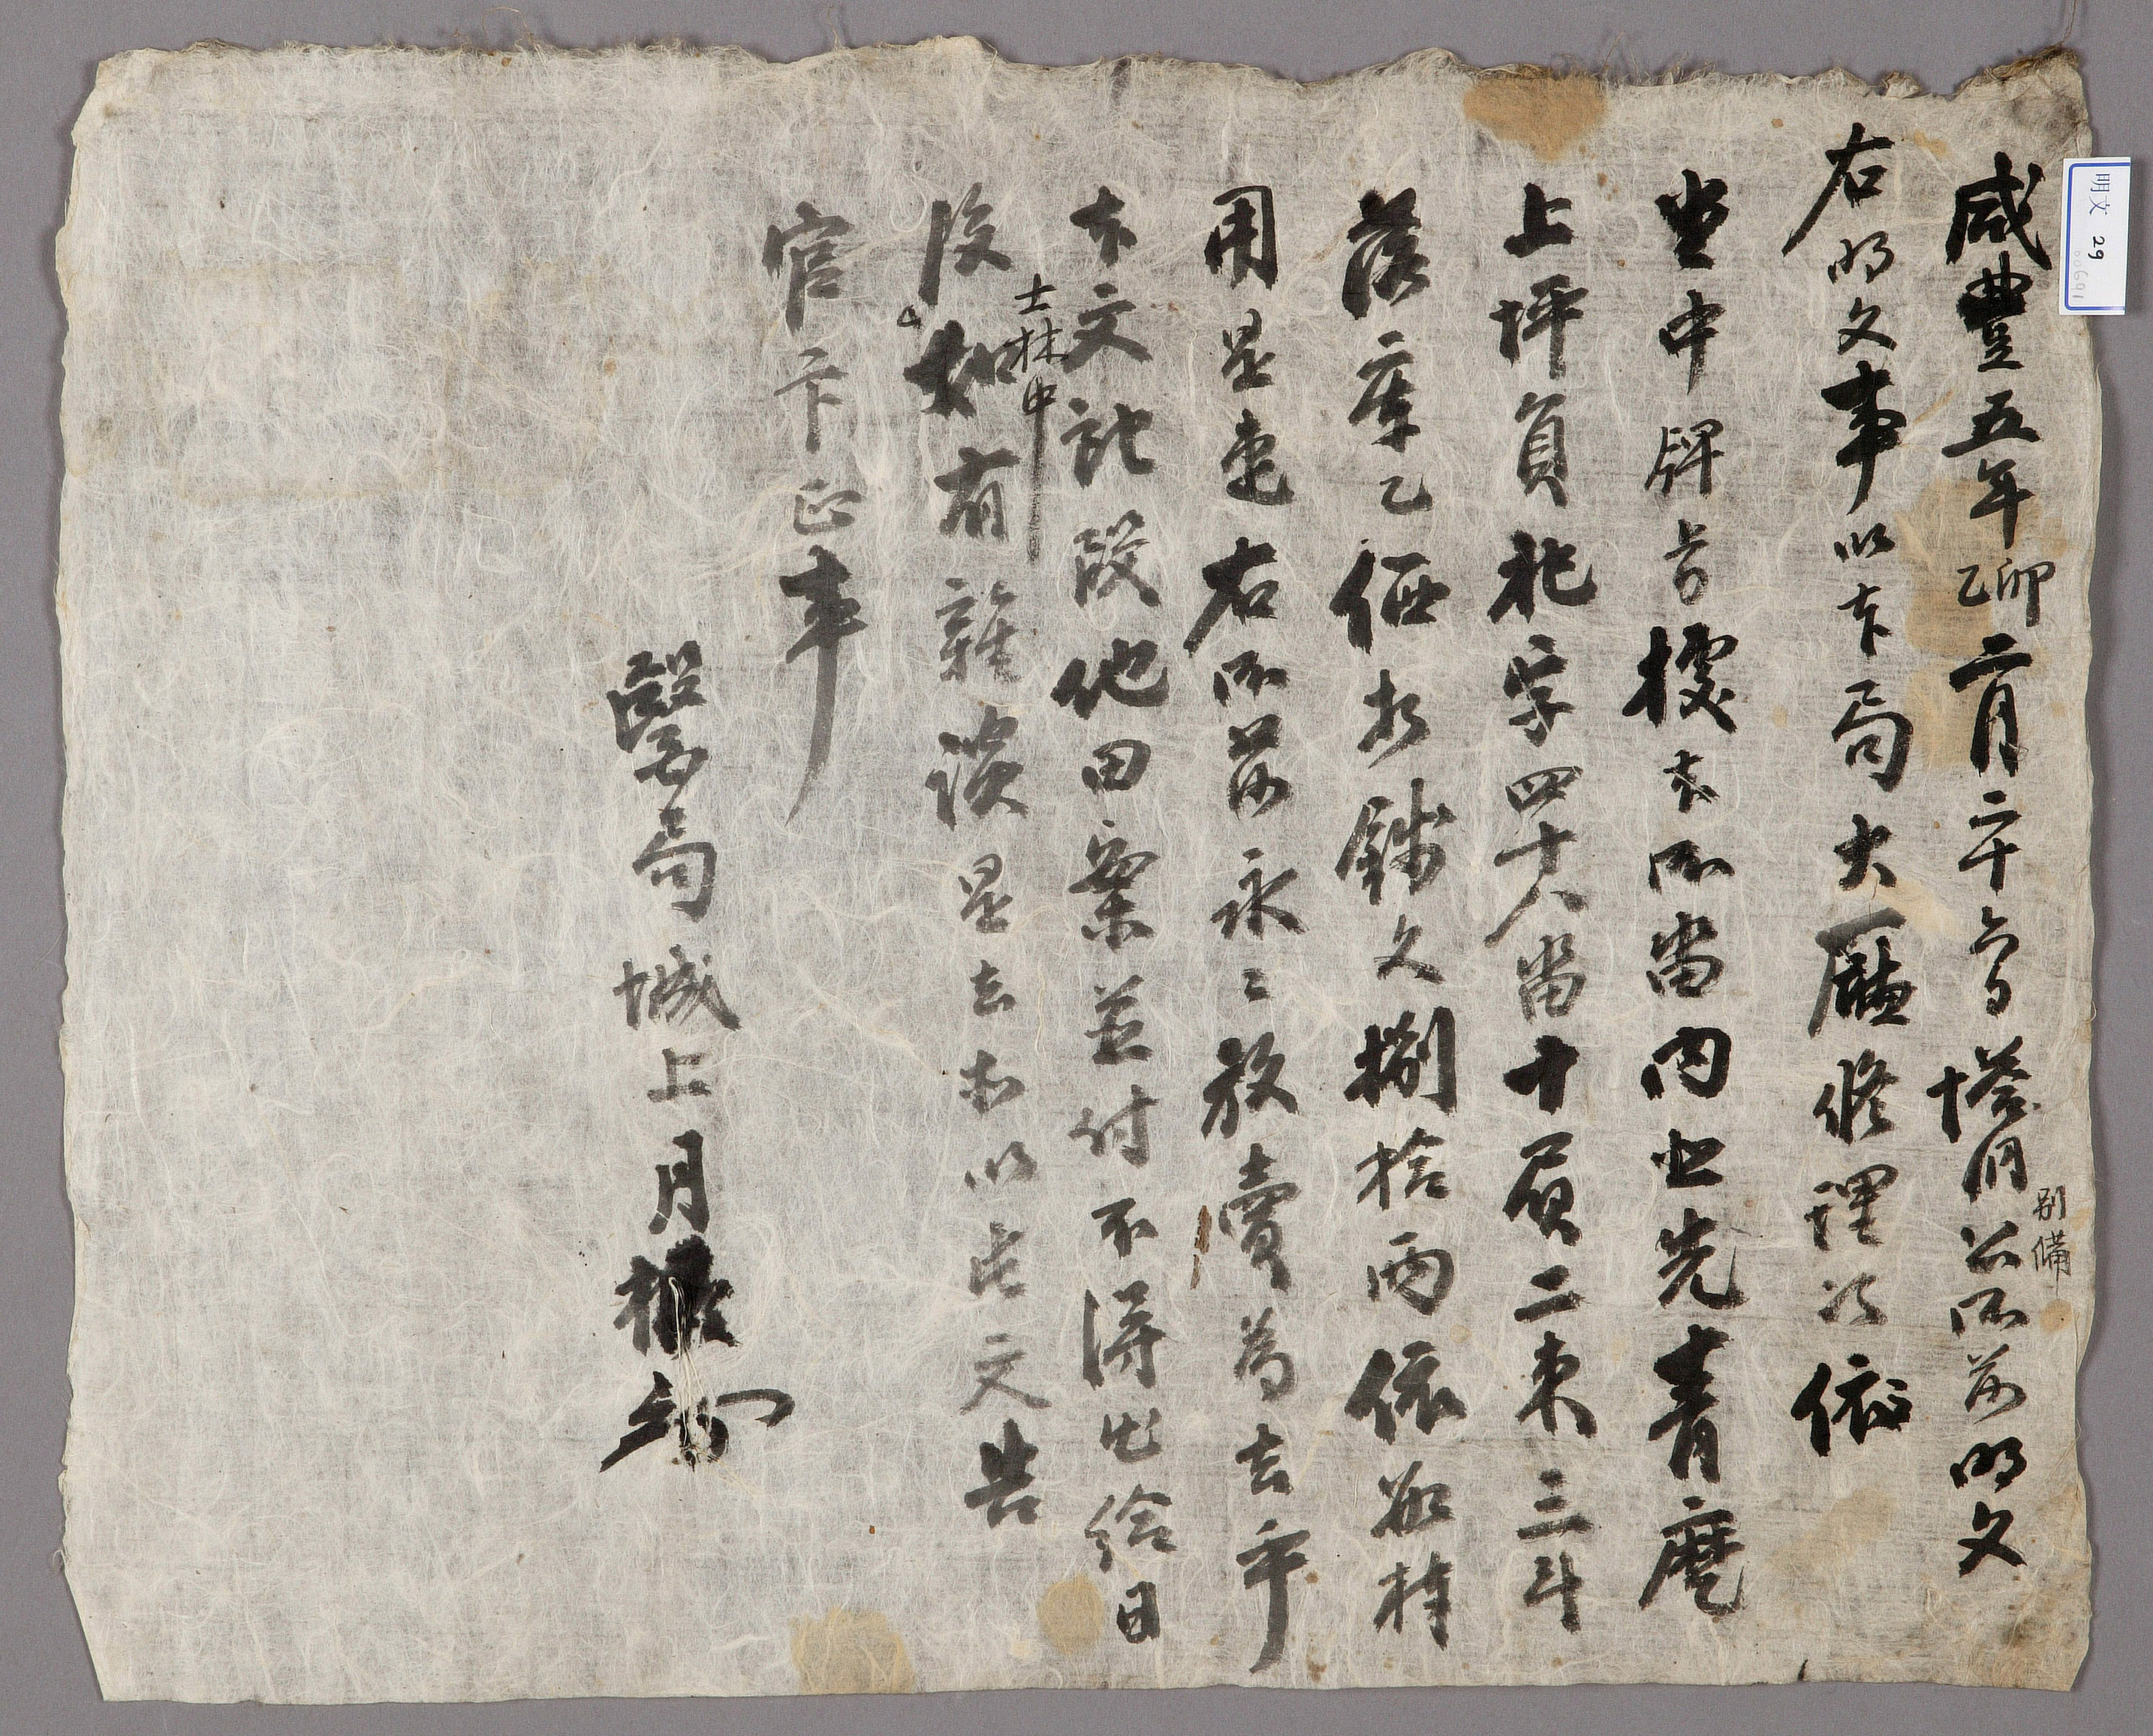 咸豊五年乙卯二月二十六日 塔洞別備所所前明文
右明文事以本局大廳修理次依
堂中牌旨據本所畓內也先青麿
上坪員北字四十八畓十負二束三斗
落庫乙価折錢文捌拾両依數捧
用是遣右所前永々放賣爲去乎
本文記段他田案並付不得出給日
後如有士林中雜談是去等以此文告
官卞正事
醫局城上月
明文 29
00691